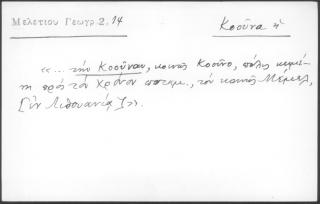 Μελετίου Γεωγρ. 2, 14
Κροῦνα ἡ
«... τὴν Κροῦναν, κοινῶς Κροῦνο, πόλις
πρὸς τὸν Χρόνον ποταμ., τὸν κοινῶς Μέμελ,
[ἐν Λιθουανίᾳ]».